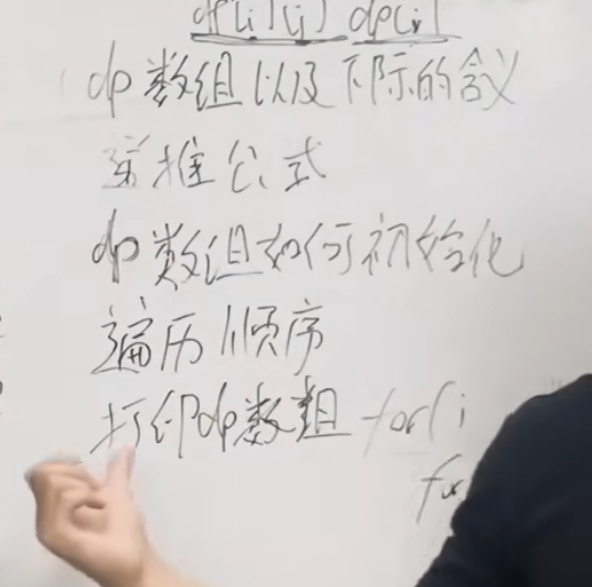 dp[i][j] dp[i]
dp数组以及下标的含义
递推公式
dp数组如何初始化
遍历顺序
打印dp数组 for(i
for